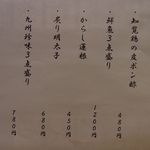 ・知覧鶏の皮ポン酢 480
・鮮魚3点盛り 1200
・からし蓮根 450
・炙り明太子 680
・九州珍味3点盛り 780円